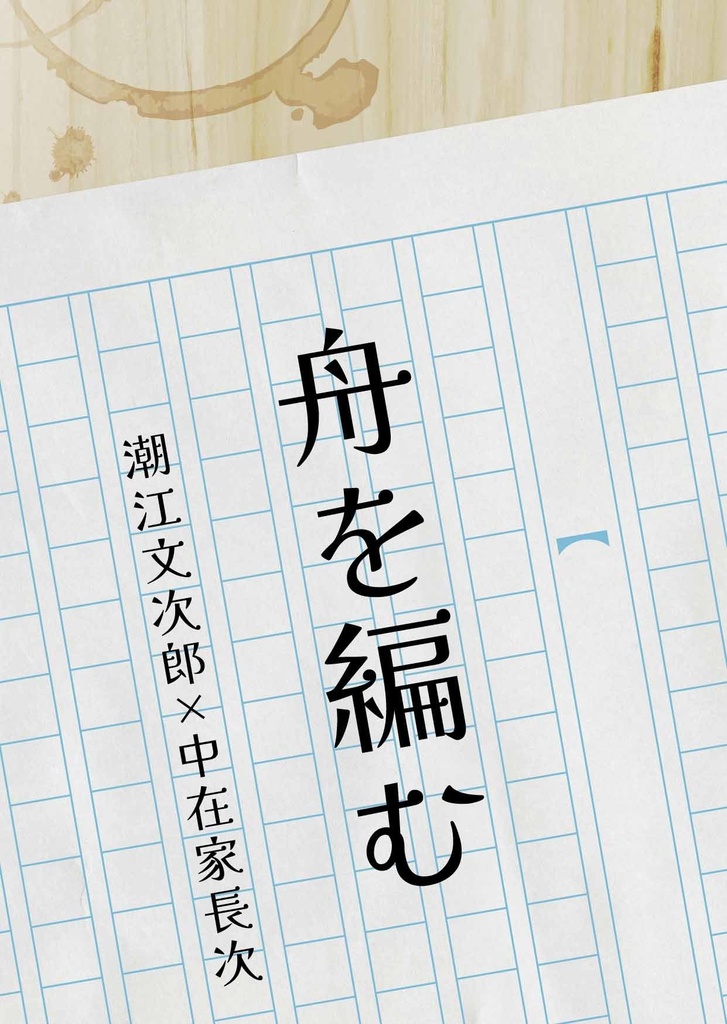 舟を編む
潮江文次郎×中在家長次